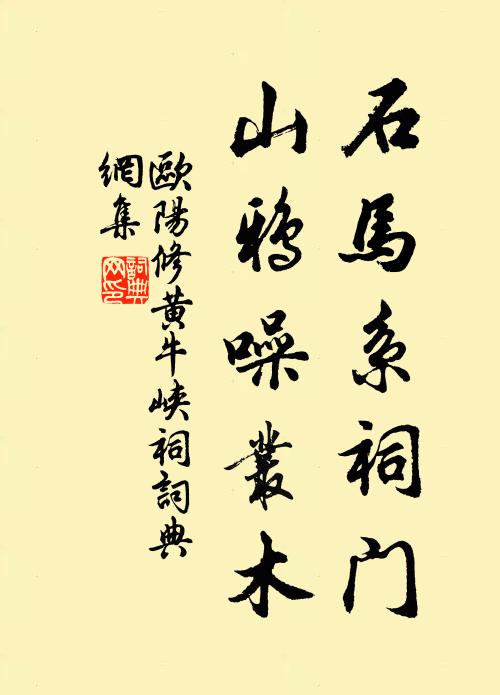 石馬系祠门
山鴉噪叢木
歐陽修黄牛峽祠詞典
網集
詞典网印